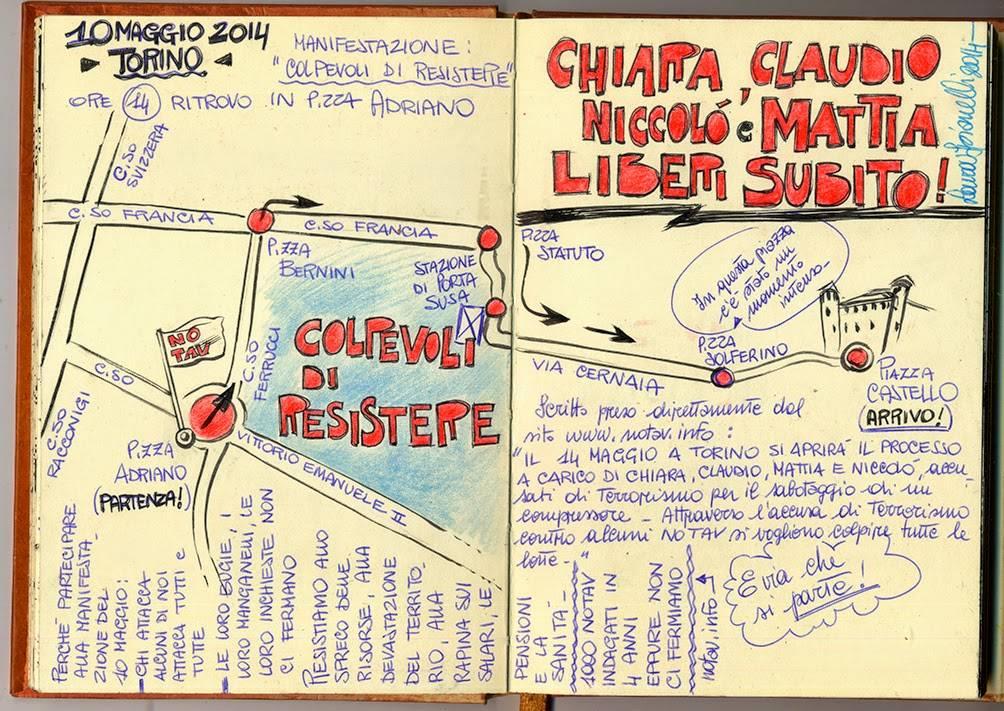 10 MAGGIO 2014
TORINO
MANIFESTAZIONE:
"COLPEVOLI DI RESISTERE"
ORE 14 RITROVO IN P.ZZA ADRIANO
C.SO
SVIZZERA
C.SO FRANCIA
C.SO FRANCIA
P.ZZA
BERNINI
STAZIONE
DI PORTA
SUSA
NO
TAV
C.SO
FERRUCCI
COLPEVOLI
DI
RESISTERE
C.SO
VITTORIO EMANUELE II
C.SO
RACCONIGI
P.ZZA
ADRIANO
(PARTENZA!)
PERCHÉ PARTECIPARE
ALLA MANIFESTA-
ZIONE DEL
10 MAGGIO:
- CHI ATTACCA
ALCUNI DI NOI
ATTACCA TUTTI E
TUTTE
- LE LORO BUGIE, I
LORO MANGANELLI, LE
LORO INCHIESTE NON
CI FERMANO
RESISTIAMO ALLO
SPRECO DELLE
RISORSE, ALLA
DEVASTAZIONE
DEL TERRITO-
RIO, ALLA
RAPINA SUI
SALARI, LE
CHIARA, CLAUDIO
NICCOLÓ e MATTIA
LIBERI SUBITO!
2014
P.ZZA
STATUTO
In questa piazza
c'è stato un
momento
intenso-
P.ZZA
SOLFERINO
VIA CERNAIA
PIAZZA
CASTELLO
(ARRIVO!)
Scritto preso direttamente dal
sito www.notav.info:
"IL 14 MAGGIO A TORINO SI APRIRÁ IL PROCESSO
A CARICO DI CHIARA, CLAUDIO, MATTIA E NICCOLÓ, accu-
sati di terrorismo per il sabotaggio di un
compressore - Attraverso l'accusa di terrorismo
contro alcuni NO TAV si vogliono colpire tutte le
lotte-"
PENSIONI
E LA
SANITÀ-
1000 NOTAV
INDAGATI IN
4 ANNI
EPPURE NON
CI FERMIAMO
notav.info
E via che
si parte!